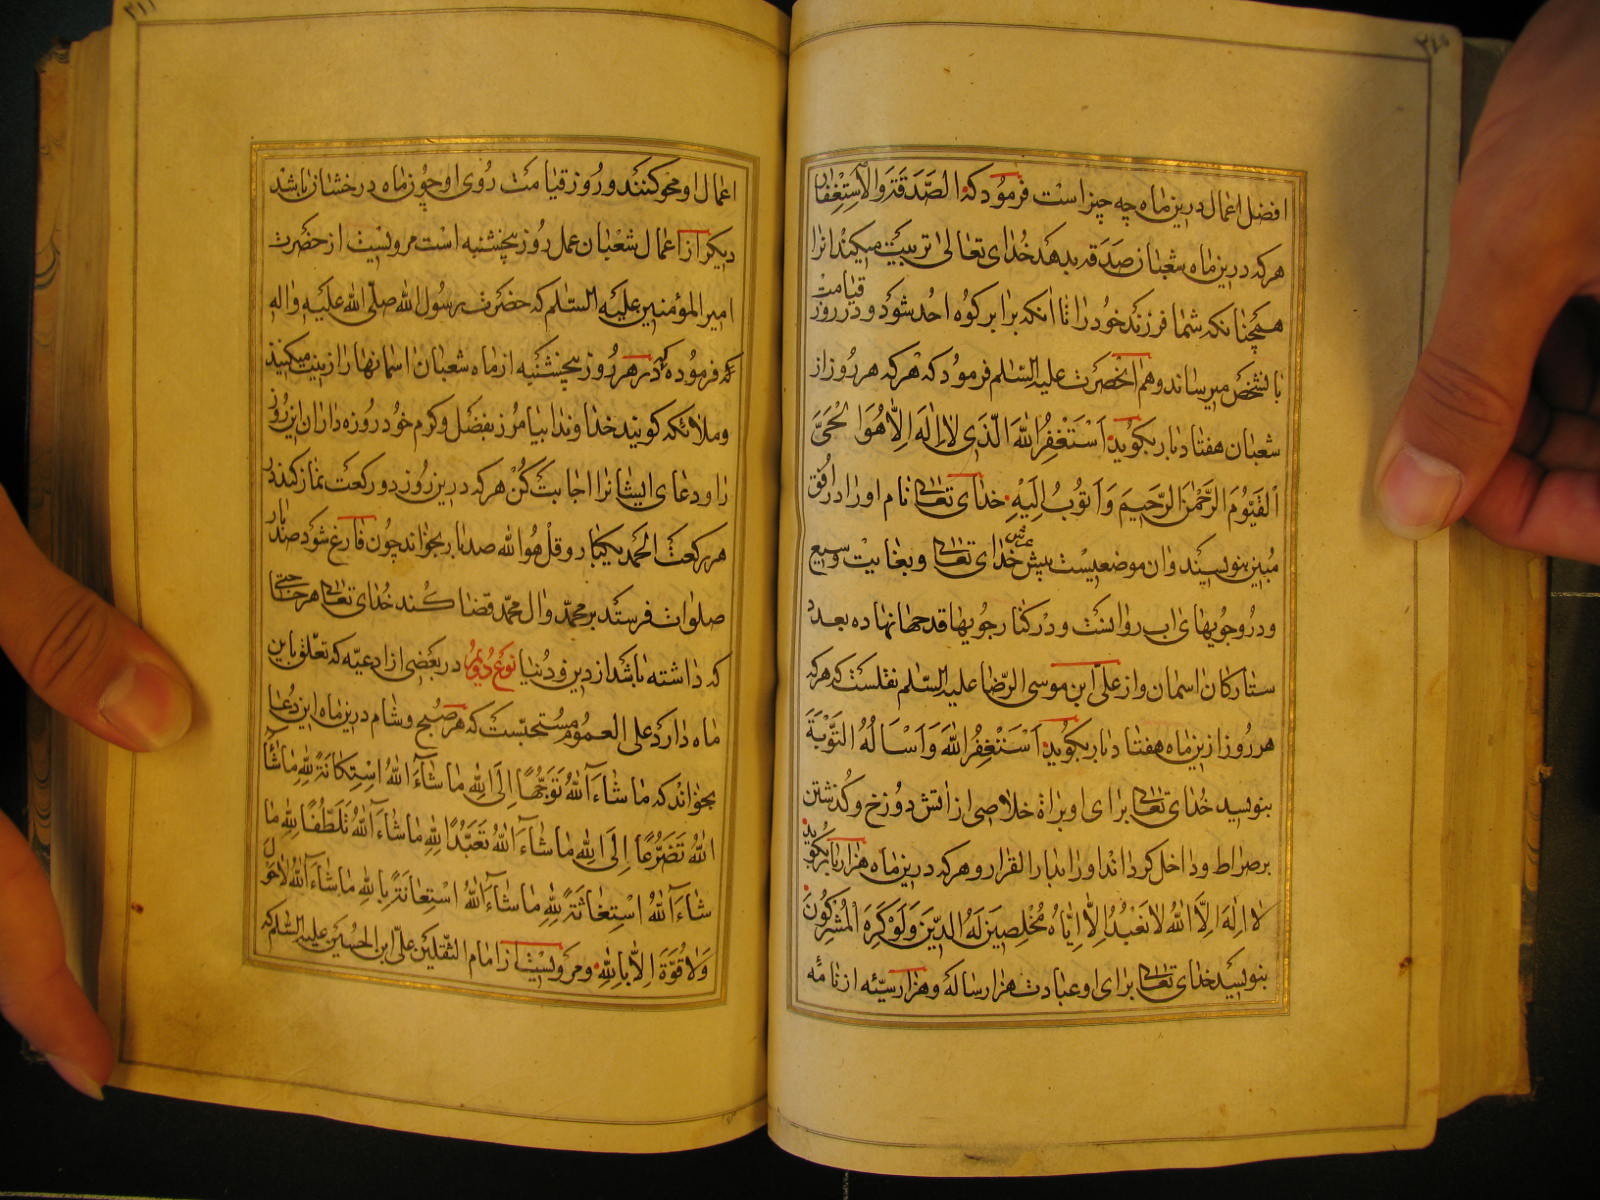 ۲۴۰
افضل اعمال درین ماه چه چیز است فرمود که الصَّدَقَةَ والاِسْتِغْفار
هر که درین ماه شعبان صدقه بدهد خدای تعالی تربیت میکند انرا
همچنانکه شما فرزند خود را تا انکه برابر کوه احد شود و در روز قیامت
بانشخص میرساند و هم انحضرت علیه السلم فرمود که هر که هر روز از
شعبان هفتاد بار بکوید اَسْتَغْفِرُ اللهَ الَّذی لا اِلٰهَ اِلّا هُوَ الْحَیَّ
اَلْقَیُّومَ الرَّحْمٰنَ الرَّحیمَ وَاَتُوبُ اِلَیْهِ خدای تعالی نام او را در افق
مبین بنویسند و ان موضعیست پیش عرش خدای تعالی و بغایت وسیع
و در و جویهای اب روانست و در کنار جویها قدحها نهاده بعدد
ستارکان اسمان و از علی ابن موسی الرضا علیه السلم نقلست که هر که
هر روز ازین ماه هفتاد بار بکوید اَسْتَغْفِرُ اللهَ وَاَسْاَلُهُ التَّوْبَةَ
بنویسد خدای تعالی برای او براة خلاصی از اتش دوزخ و کذشتن
بر صراط و داخل کرداند او را بدار القرار و هر که درین ماه هزار بار بکوید
لا اِلٰهَ اِلَّا اللهُ لا نَعْبُدُ اِلّا اِیّاهُ مُخْلِصینَ لَهُ الدّینَ وَلَوْ کَرِهَ الْمُشْرِکُونَ
بنویسد خدای تعالی برای او عبادت هزار ساله و هزار سیّئه از نامهٔ
۲۴۱
اعمال او محو کنند و روز قیامت روی او چون ماه درخشان باشد
دیکر از اعمال شعبان عمل روز پنجشنبه است مرویست از حضرت
امیر المؤمنین علیه السلم که حضرت رسول الله صلّی الله علیه و اله
که فرموده که در هر روز پنجشنبه از ماه شعبان اسمانها را زینت میکنند
و ملائکه کویند خداوندا بیامرز بفضل و کرم خود روزه داران این روز
را و دعای ایشانرا اجابت کن هر که درین روز دو رکعت نماز کند در
هر رکعت الحمد یکبار و قل هو الله صد بار بخواند چون فارغ شود صد بار
صلوات فرستد بر محمّد وال محمّد قضا کند خدای تعالی هر حاجتی
که داشته باشد از دین و دنیا نوع دویم در بعضی از ادعیّه که تعلّق باین
ماه دارد علی العموم مستحبّست که هر صبح و شام درین ماه این دعا
بخواند که ما شاءَ اللهُ تَوَجُّهًا اِلَی اللهِ ما شاءَ اللهُ اسْتِکانَةً لِلّهِ ما شاءَ
اللهُ تَضَرُّعًا اِلَی اللهِ ما شاءَ اللهُ تَعَبُّدًا لِلّهِ ما شاءَ اللهُ تَلَطُّفًا لِلّهِ ما
شاءَ اللهُ اسْتِغاثَةً لِلّهِ ما شاءَ اللهُ اسْتِعانَةً بِاللهِ ما شاءَ اللهُ لا حَوْلَ
وَلا قُوَّةَ اِلّا بِاللهِ و مرویست از امام الثقلین علی ابن الحسین علیه السلم که